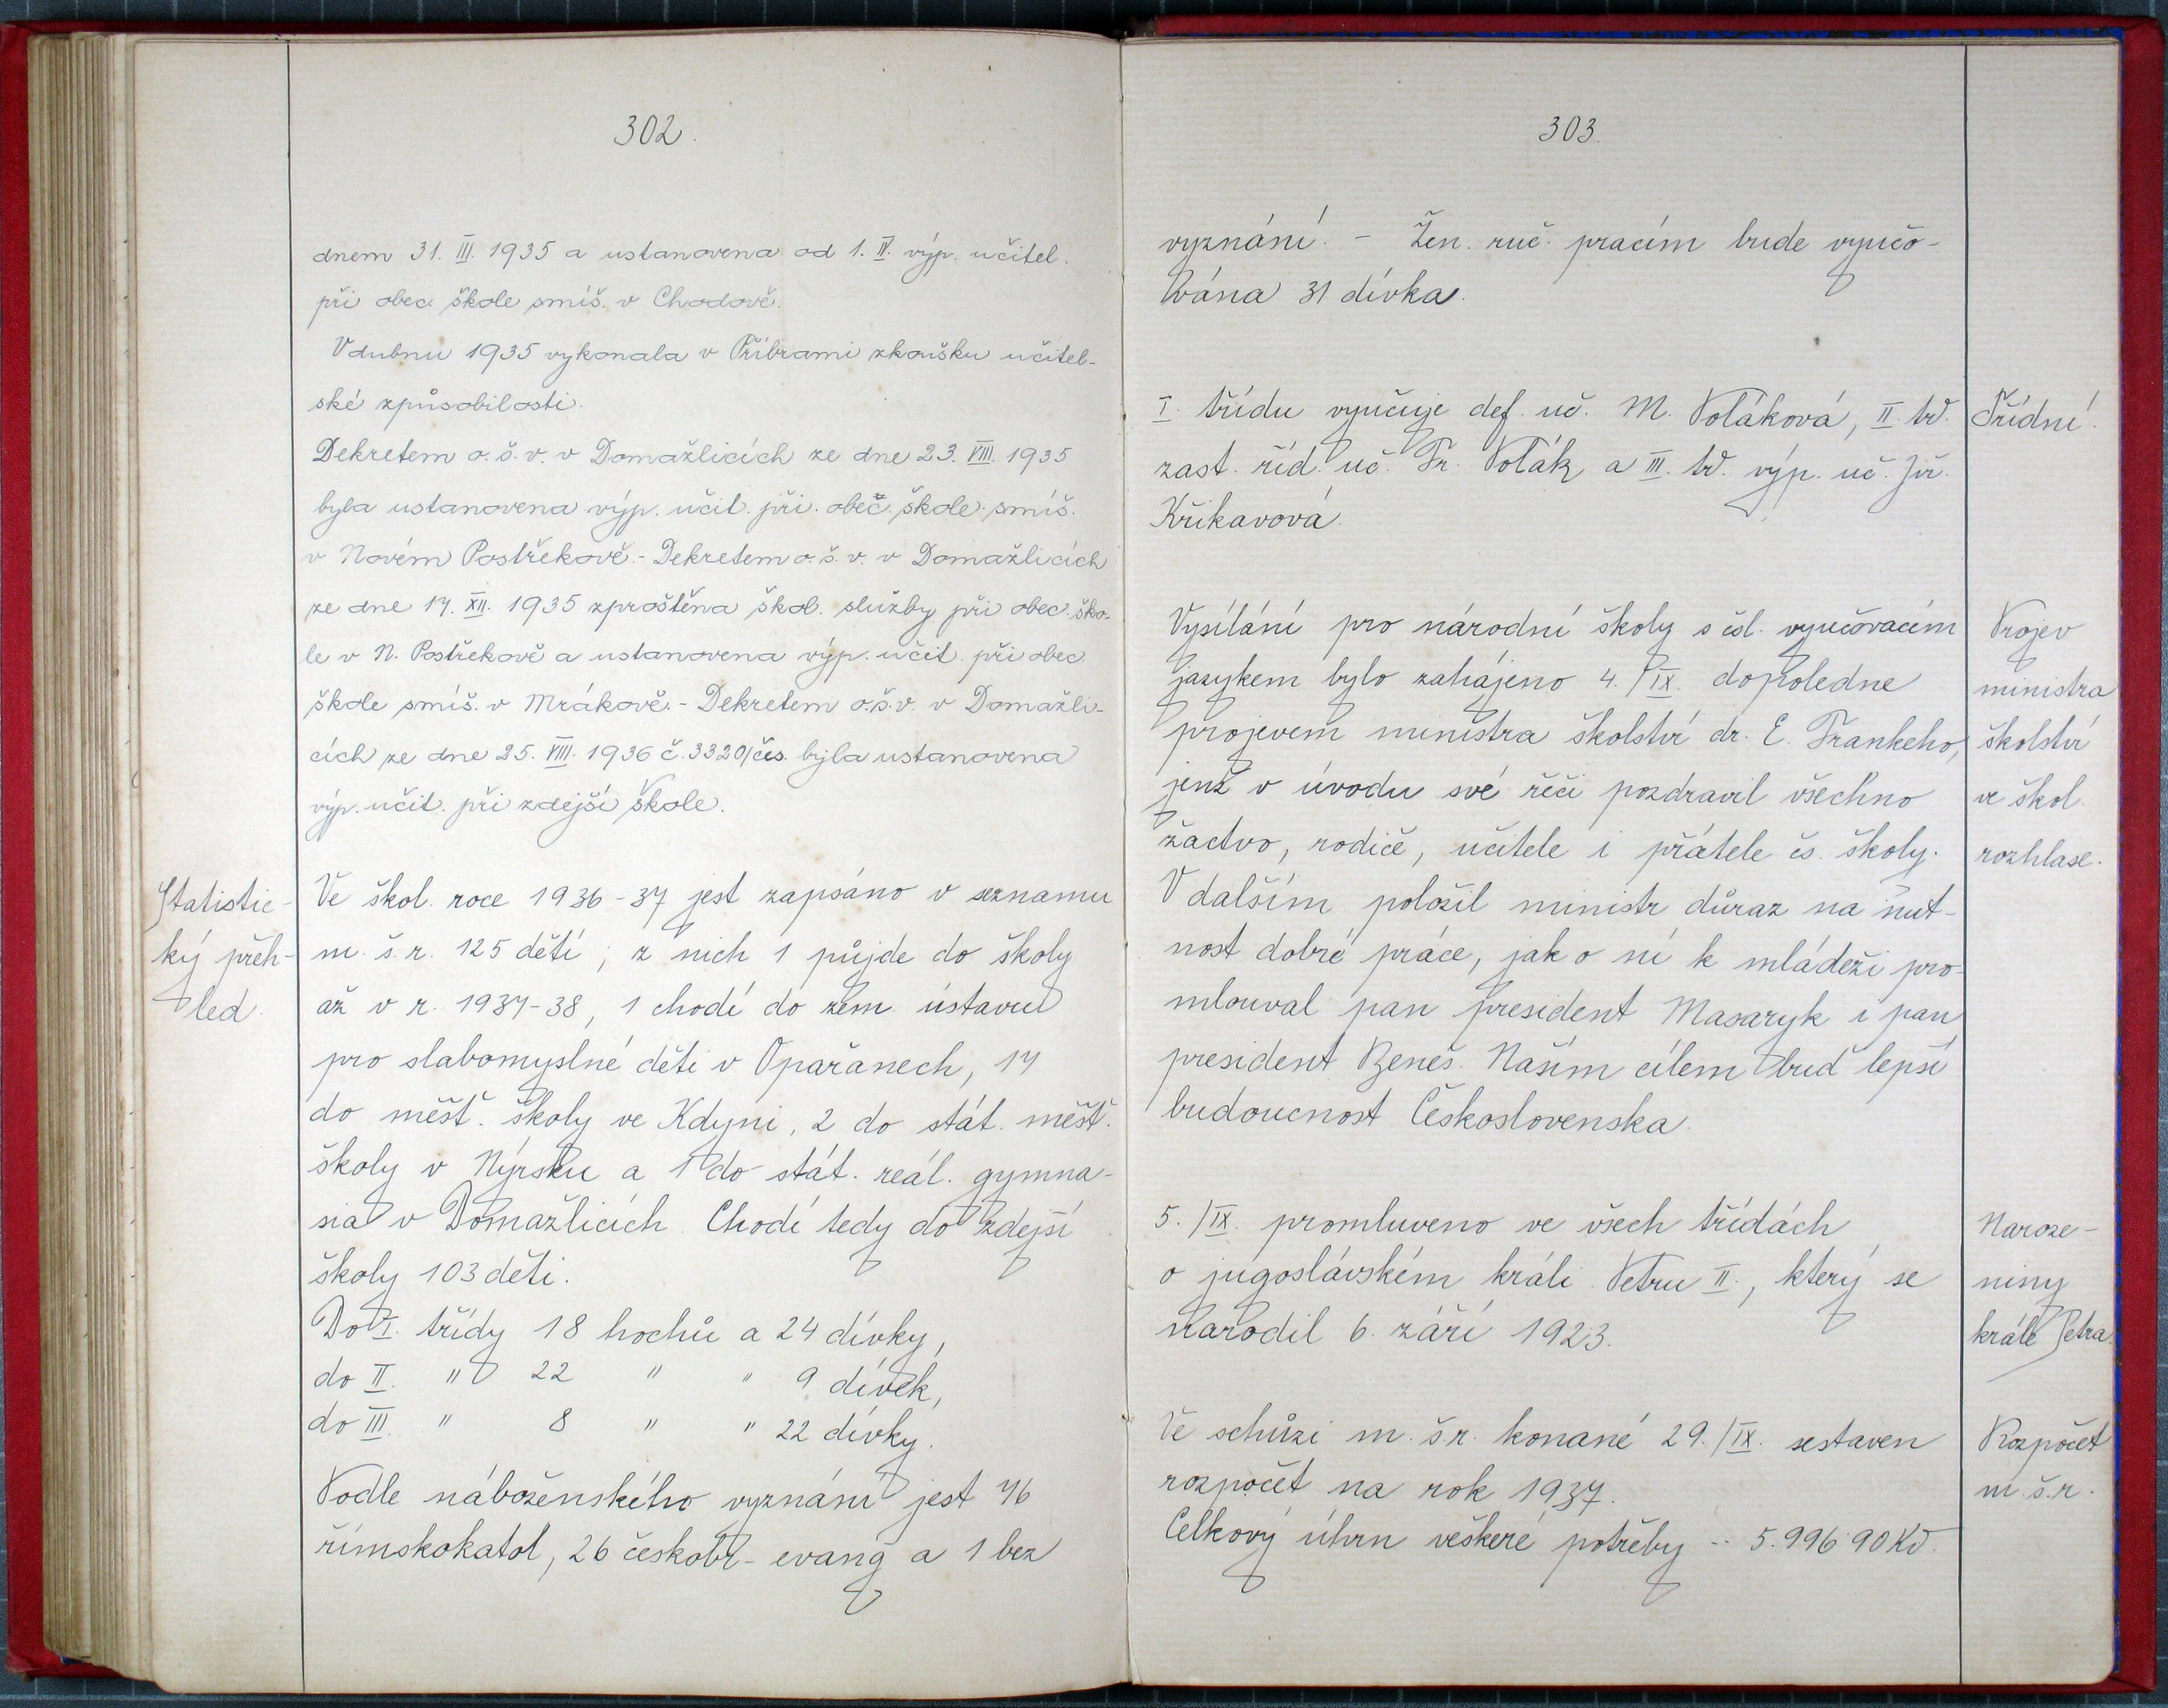 302.
dnem 31. III. 1935 a ustanovena od 1. IV. výp. učitel.
při obec. škole smíš. v Chodově.
V dubnu 1935 vykonala v Příbrami zkoušku učitel-
ské způsobilosti.
Dekretem o. š. v. v Domažlicích ze dne 23. VIII. 1935
byla ustanovena výp. učit. při obeč. škole smíš.
v Novém Postřekově. - Dekretem o. š. v. v Domažlicích
ze dne 17. XII. 1935 zproštěna škol. služby při obec. ško-
le v N. Postřekově a ustanovena výp. učit. při obec.
škole smíš. v Mrákově. - Dekretem o.š.v. v Domažli-
cích ze dne 25. VIII. 1936 č. 3320/čes. byla ustanovena
výp. učit. při zdejší škole.
Statistic-
ký přeh-
led.
Ve škol. roce 1936-37 jest zapsáno v seznamu
m. š. r. 125 dětí; z nich 1 půjde do školy
až v r. 1937-38, 1 chodí do zem. ústavu
pro slabomyslné děti v Opařanech, 17
do měšť. školy ve Kdyni, 2 do stát. měšť.
školy v Nýrsku a 1 do stát. reál. gymna-
sia v Domažlicích. Chodí tedy do zdejší
školy 103 děti.
Do I. třídy 18 hochů a 24 dívky,
do II. " 22 " " 9 dívek,
do III. " 8 " " 22 dívky.
Podle náboženského vyznání jest 76
římskokatol, 26 českobr- evang a 1 bez
303.
vyznání. - Žen. ruč. pracím bude vyučo-
vána 31 dívka.
I. třídu vyučuje def. uč. M. Voláková, II. tř.
zast. říd. uč. Fr. Volák a III. tř. výp. uč. Jiř.
Křikavová.
Třídní.
Vysílání pro národní školy s čsl. vyučovacím
jazykem bylo zahájeno 4./IX. dopoledne
projevem ministra školství dr. E. Frankeho,
jenž v úvodu své řeči pozdravil všechno
žactvo, rodiče, učitele i přátele čs. školy.
V dalším položil ministr důraz na nut-
nost dobré práce, jak o ní k mládeži pro-
mlouval pan president Masaryk i pan
president Beneš. Naším cílem buď lepší
budoucnost Československa.
Projev
ministra
školství
ve škol.
rozhlase.
5./IX. promluveno ve všech třídách
o jugoslávském králi Petru II., který se
narodil 6. září 1923.
Naroze-
niny
krále Petra.
Ve schůzi m. š.r. konané 29./IX. sestaven
rozpočet na rok 1937.
Celkový úhrn veškeré potřeby -- 5.996.90 Kč.
Rozpočet
m. š. r.